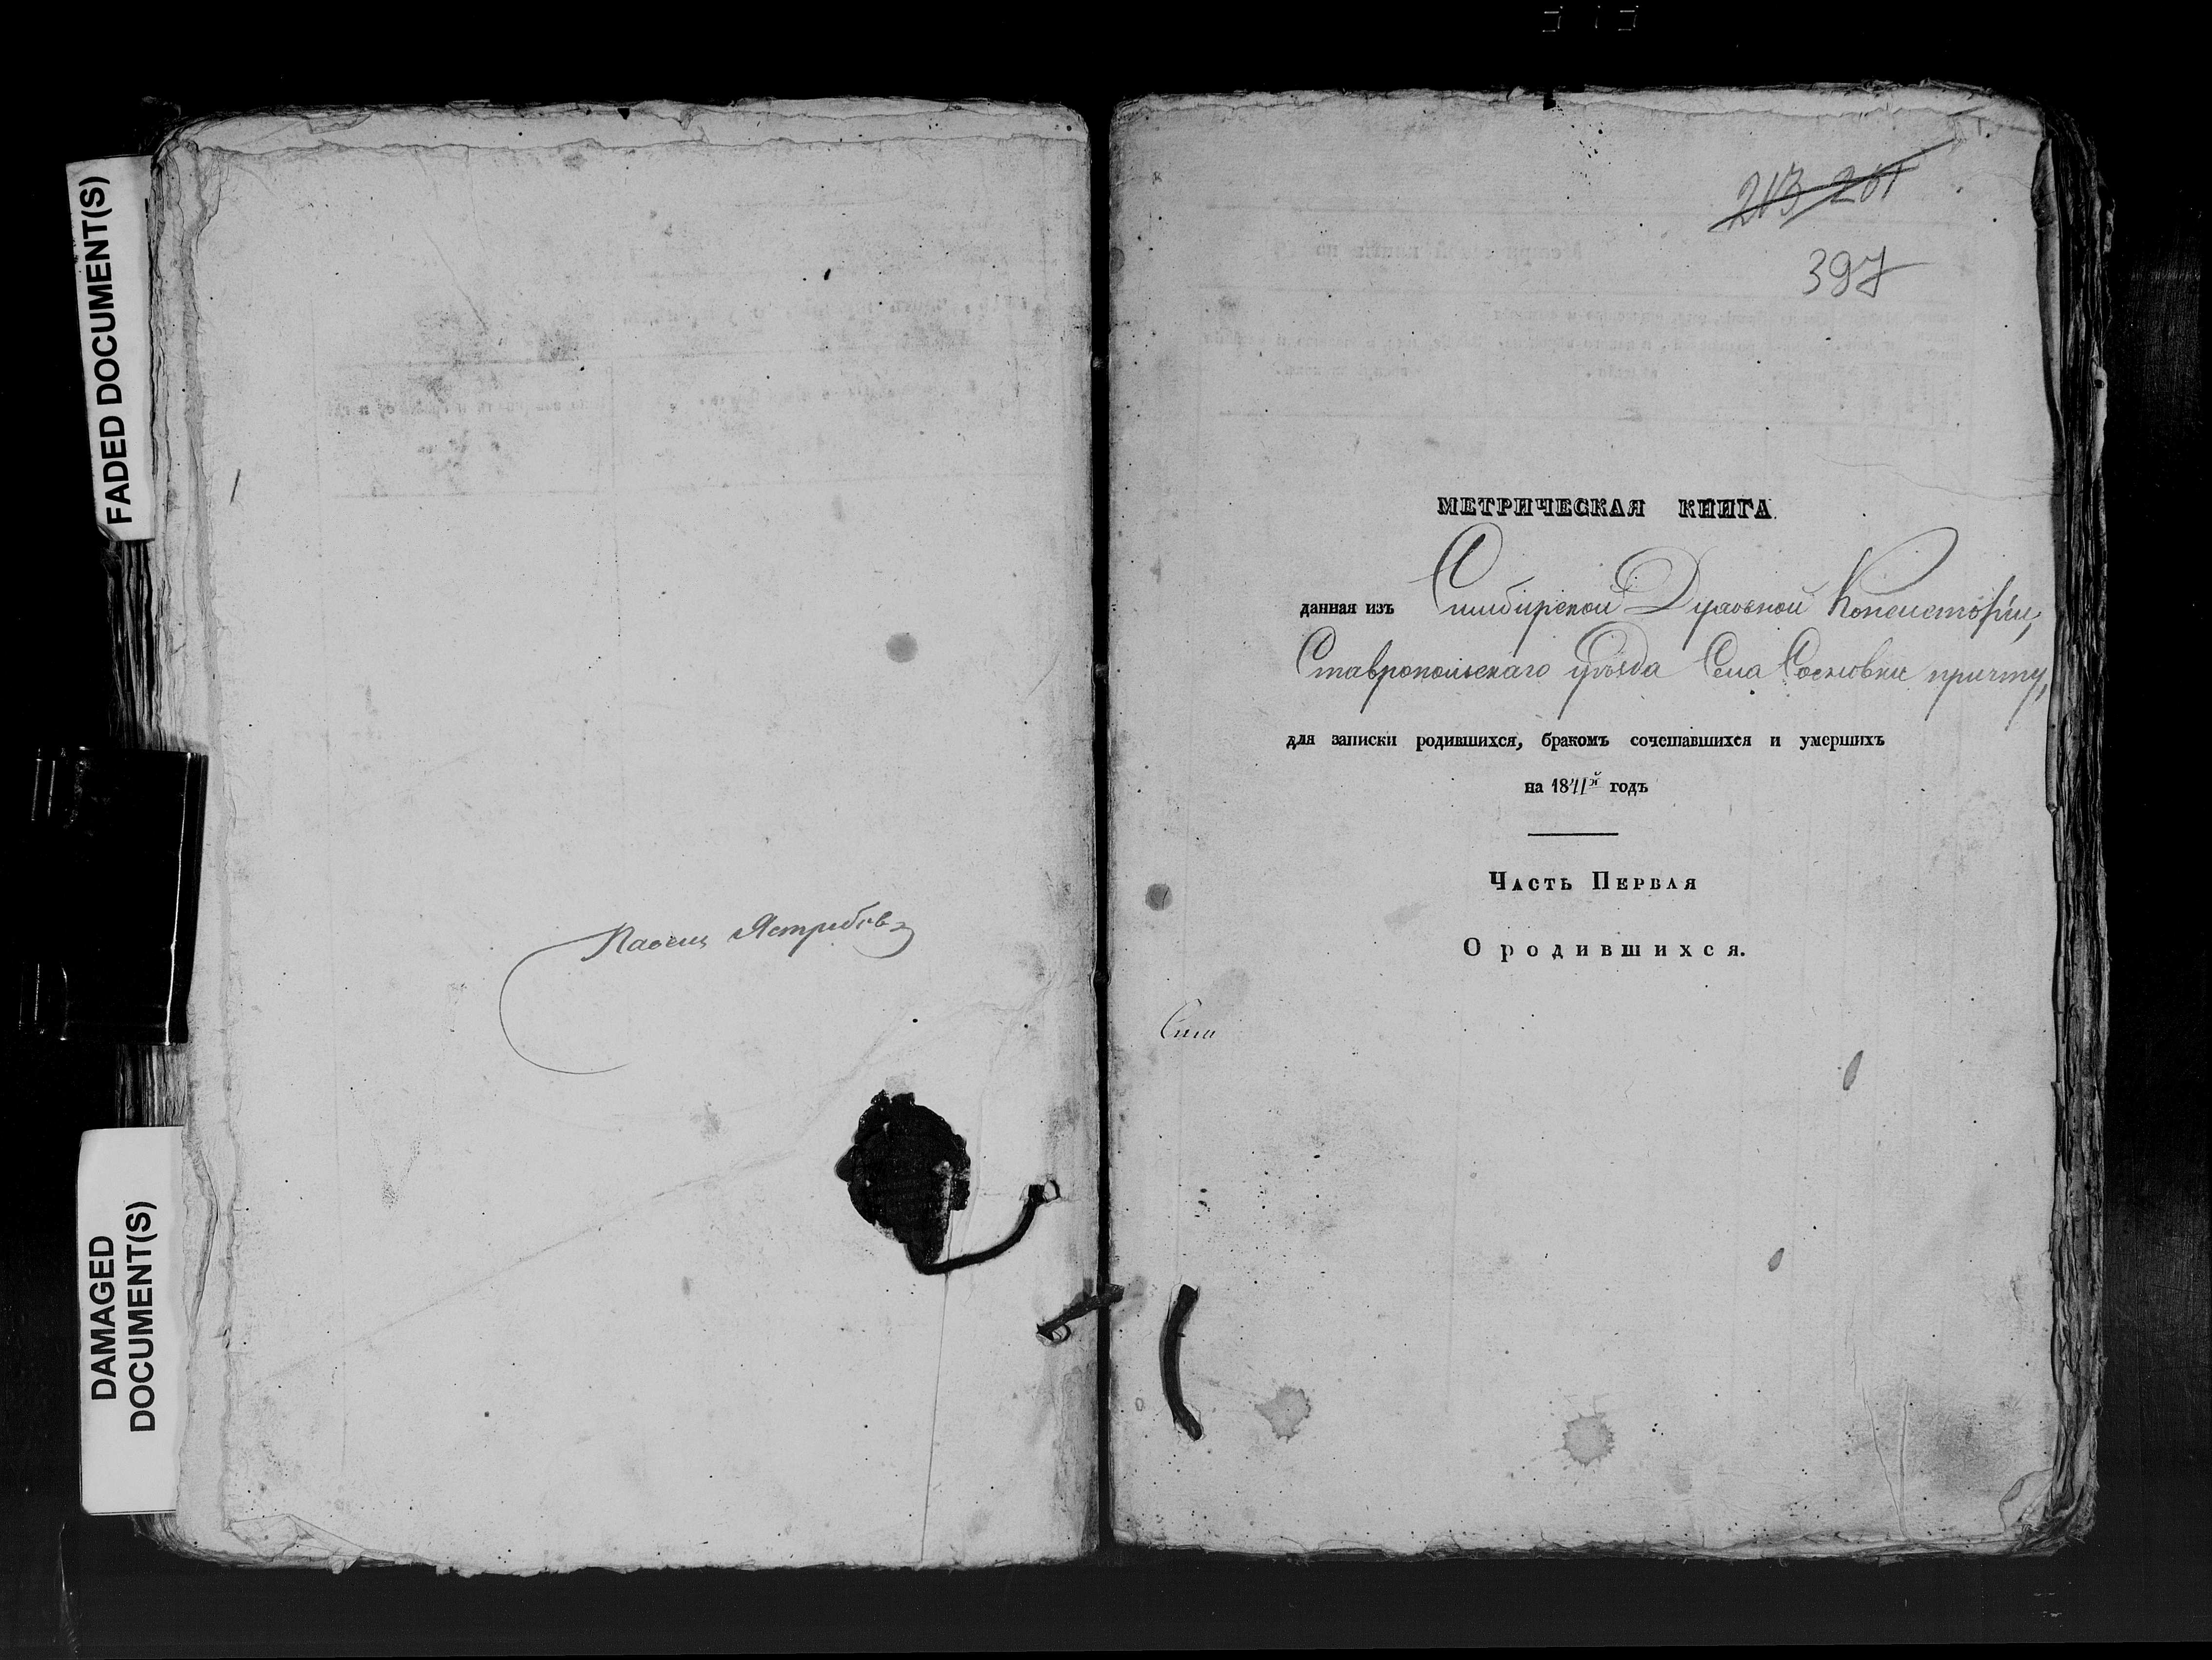 FADED DOCUMENT(S)
DAMAGED
DOCUMENT(S)
Павелъ Ястребовъ
213 261
397
МЕТРИЧЕСКАЯ КНИГА
данная изъ Симбирской Духовной Консисторіи,
Ставропольскаго уѣзда Села Сосновки причту,
для записки родившихся, бракомъ сочетавшихся и умершихъ
на 1841й годъ
Часть Первая
О родившихся.